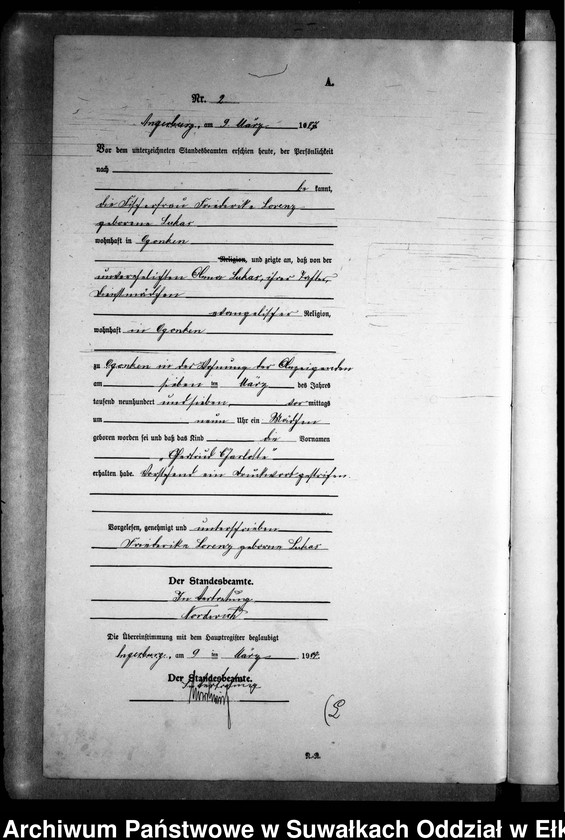 A.
Nr. 2
Angerburg, am 9. März 1907
Vor dem unterzeichneten Standesbeamten erschien heute, der Persönlichkeit
nach
be kannt,
die Fischerfrau Friederike Lorenz
geborene Lukas
wohnhaft in Ogonken
Religion, und zeigte an, daß von der
unverehelichten Anna Lukas, ihrer Tochter,
Dienstmädchen
evangelischer Religion,
wohnhaft in Ogonken
zu Ogonken in der Wohnung der Anzeigenden
am sieben ten März des Jahres
tausend neunhundert und sieben, vor mittags
um neun Uhr ein Mädchen
geboren worden sei und daß das Kind die Vornamen
„Gertrud Charlotte"
erhalten habe. Vorstehend ein Druckwort gestrichen.
Vorgelesen, genehmigt und unterschrieben
Friederike Lorenz geborene Lukas
Der Standesbeamte.
In Vertretung
Die Übereinstimmung mit dem Hauptregister beglaubigt
Angerburg, am 9 ten März 1907.
Der Standesbeamte.
In Vertretung
Archiwum Państwowe w Suwałkach Oddział w Ełk